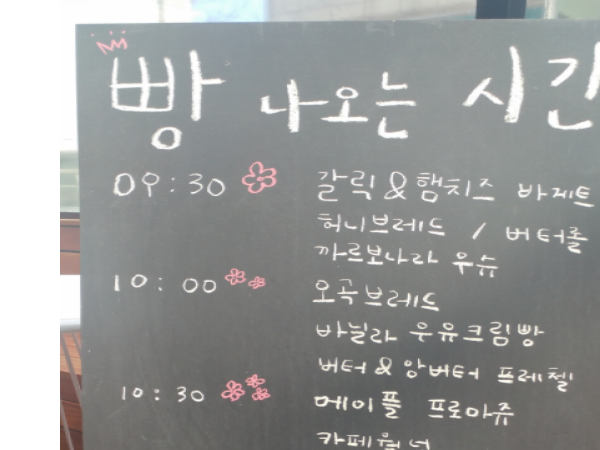 빵 나오는 시간
09:30 갈릭&햄치즈 바게트
허니브레드 / 버터롤
까르보나라 우슈
10:00 오곡브레드
바닐라 우유크림빵
버터&앙버터 프레첼
10:30 메이플 프로마쥬
카페월넛